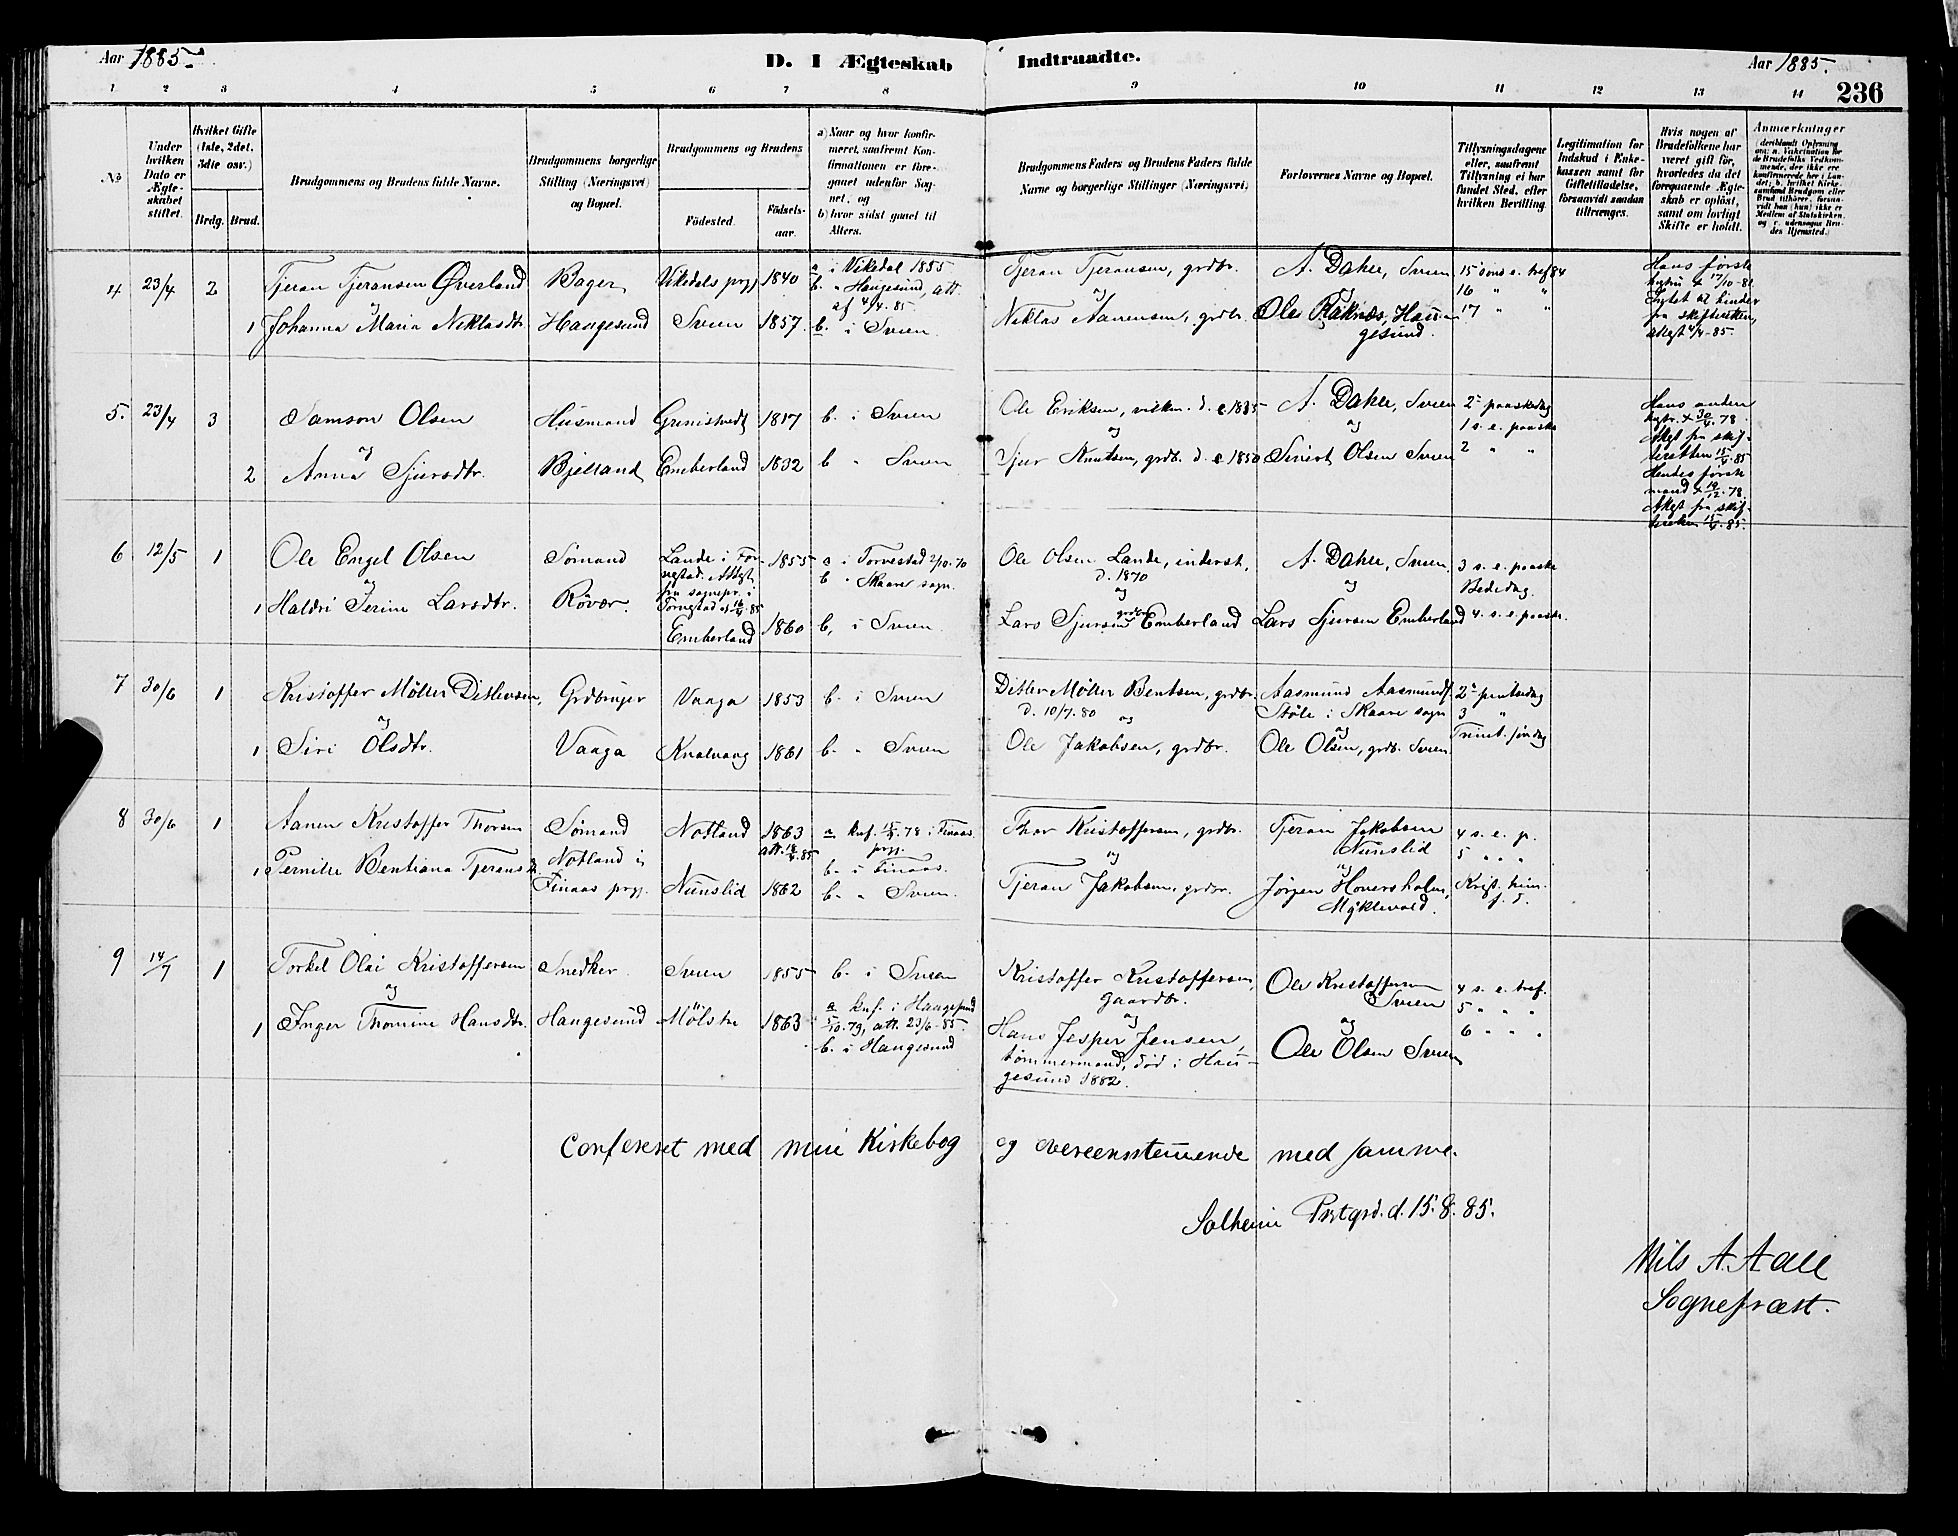 Aar 1885.
D. I Ægteskab Indtraadte.
Aar 1885.
236
1 2 3 4 5 6 7 8 9 10 11 12 13 14
No
Under hvilken Dato er Ægteskabet stiftet.
Hvilket Gifte (1ste, 2det, 3die osv.)
Brdg. Brud.
Brudgommens og Brudens fulde Navne.
Brudgommens borgerlige Stilling (Næringsvei) og Bopæl.
Brudgommens og Brudens
Fødested.
Fødselsaar.
a) Naar og hvor konfirmeret, saafremt Konfirmationen er foregaaet udenfor Sognet, og
b) hvor sidst gaaet til Alters.
Brudgommens Faders og Brudens Faders fulde Navne og borgerlige Stillinger (Næringsvei)
Forlovernes Navne og Bopæl.
Tillysningsdagene eller, saafremt Tillysning ei har fundet Sted, efter hvilken Bevilling.
Legitimation for Indskud i Enkekassen samt for Giftetilladelse, forsaavidt saadan tiltrænges.
Hvis nogen af Brudefolkene har været gift før, hvorledes da det foregaaende Ægteskab er opløst, samt om lovligt Skifte er holdt.
Anmærkninger
4 23/4 2 Tjeran Tjeransen Øverland Bager Vikedals prgj 1840 a i Vikedal 1855
b. " Haugesund, att af 4/4.85
Tjeran Tjeransen, grdbr. A. Dahle, Sveen 15 sønd e. tref 84
og 16 " "
1 Johanna Maria Niklasdtr. Haugesund Sveen 1857. b. i Sveen
Niklas Aanensen, grdbr. Ole Raknæs, Haugesund. 17 " "
Hans første hustru + 17/10-82
fra skifteretten,
4/4-85.
5. 23/4 3 Samson Olsen Husmand 1817 b. i Sveen
Ole Eriksen, A. Dahle, Sveen 2den paaskedag
og og og 1 s. e. paaske
2 Anna Sjursdtr. Bjelland Emberland 1832 b " Sveen
Sjur Knutsen, grdb. d. c 1850 Sivert Olsen Sveen 2 " "
Hans anden
hustr. + 30/4.78.
Attest fra skifteretten 15/4.85
Hendes første
mand + 19/12.78.
Attest fra skifteretten 15/4.85.
6 12/5 1 Ole Engel Olsen Sømand Lande i Torvestad. Attest fra sognepr. i Torvestad af 16/4.85 1855 a i Torvestad 2/10.70
b " Skaare sogn.
Ole Olsen Lande, inderst, A. Dahle, Sveen 3 s. e. paaske
d. 1870
og og og Bededag.
1 Haldri Serine Larsdtr. Røvær. Emberland 1860 b, i Sveen
Lars Sjursen grdbr. Emberland Lars Sjursen Emberland 4. s. e. paaske.
7 30/6 1 Kristoffer Møller Ditlevsen, Grdbruger Vaaga 1853 b. i Sveen
Ditlev Møller Bentsen, grdbr. Aasmund Aasmunds. 2den pintsedag
d. 10/7.80 Støle i Skaare sogn 3 "
og og og
1 Siri Olsdtr. Vaaga Kvalvaag 1861 b. " Sveen
Ole Jakobsen, grdbr. Ole Olsen, grdb. Sveen Trinit. søndag
8 30/6 1 Aanen Kristoffer Thorsen Sømand Notland 1863 a knf. i Finaas prgj.
att. 18/4.85 b. i Finaas.
Thor Kristoffersen, grdbr. Tjeran Jakobsen Nunslid 4 s. e. p.
og og 5 " " "
1 Pernille Bentiana Tjeransd. Notland i Finaas prgj. Nunslid 1862 b. " Sveen.
Tjeran Jakobsen, grdbr. Jørgen Hoversholm, Myklevold. Krist. him. f. d.
9 14/7 1 Torkel Olai Kristoffersen Snedker Sveen 1855 b. i Sveen
Kristoffer Kristoffersen, gaardbr. Ole Kristoffersen Sveen 4 s. e. tref.
og og og 5 " " "
1 Inger Thomine Hansdtr. Haugesund Mølstre 1863 a knf. i Haugesund 5/10.79, att. 23/6-85.
b. i Haugesund
Hans Jesper Jensen, tømmermand, død i Haugesund 1882. Ole Olsen Sveen 6 " " "
Confereret med min Kirkebog og overeenstemmende med samme.
Solheim Prstgrd. d. 15.8.85.
Nils A. Aall
Sognepræst.